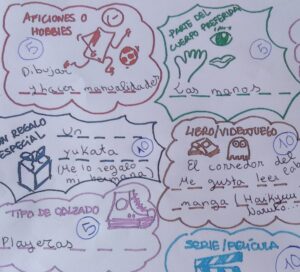 AFICIONES O
HOBBIES
5
Dibujar
y hacer manualidades
PARTE DEL
CUERPO PREFERIDA
5
Las manos
UN REGALO
ESPECIAL
10
Un
yukata
(Me lo regaló
mi hermana)
LIBRO/VIDEOJUEGO
10
El corredor del
Me gusta leer
manga (Haikyuu
Naruto...
TIPO DE CALZADO
5
Playeras
SERIE/PELÍCULA
10